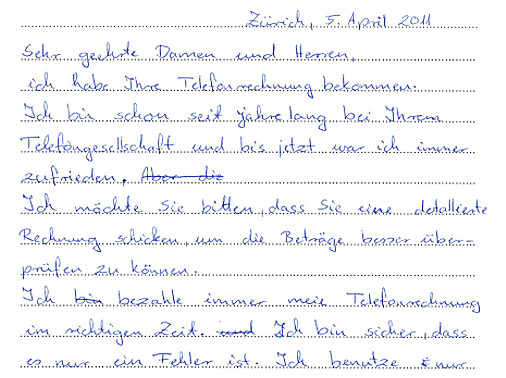 Zürich, 5. April 2011
Sehr geehrte Damen und Herren,
ich habe Ihre Telefonrechnung bekommen.
Ich bin schon seit jahrelang bei Ihrem
Telefongesellschaft und bis jetzt war ich immer
zufrieden. Aber die
Ich möchte Sie bitten, dass Sie eine detallierte
Rechnung schicken, um die Beträge besser über-
prüfen zu können.
Ich bin bezahle immer meie Telefonrechnung
im richtigen Zeit. und Ich bin sicher, dass
es nur ein Fehler ist. Ich benutze nur